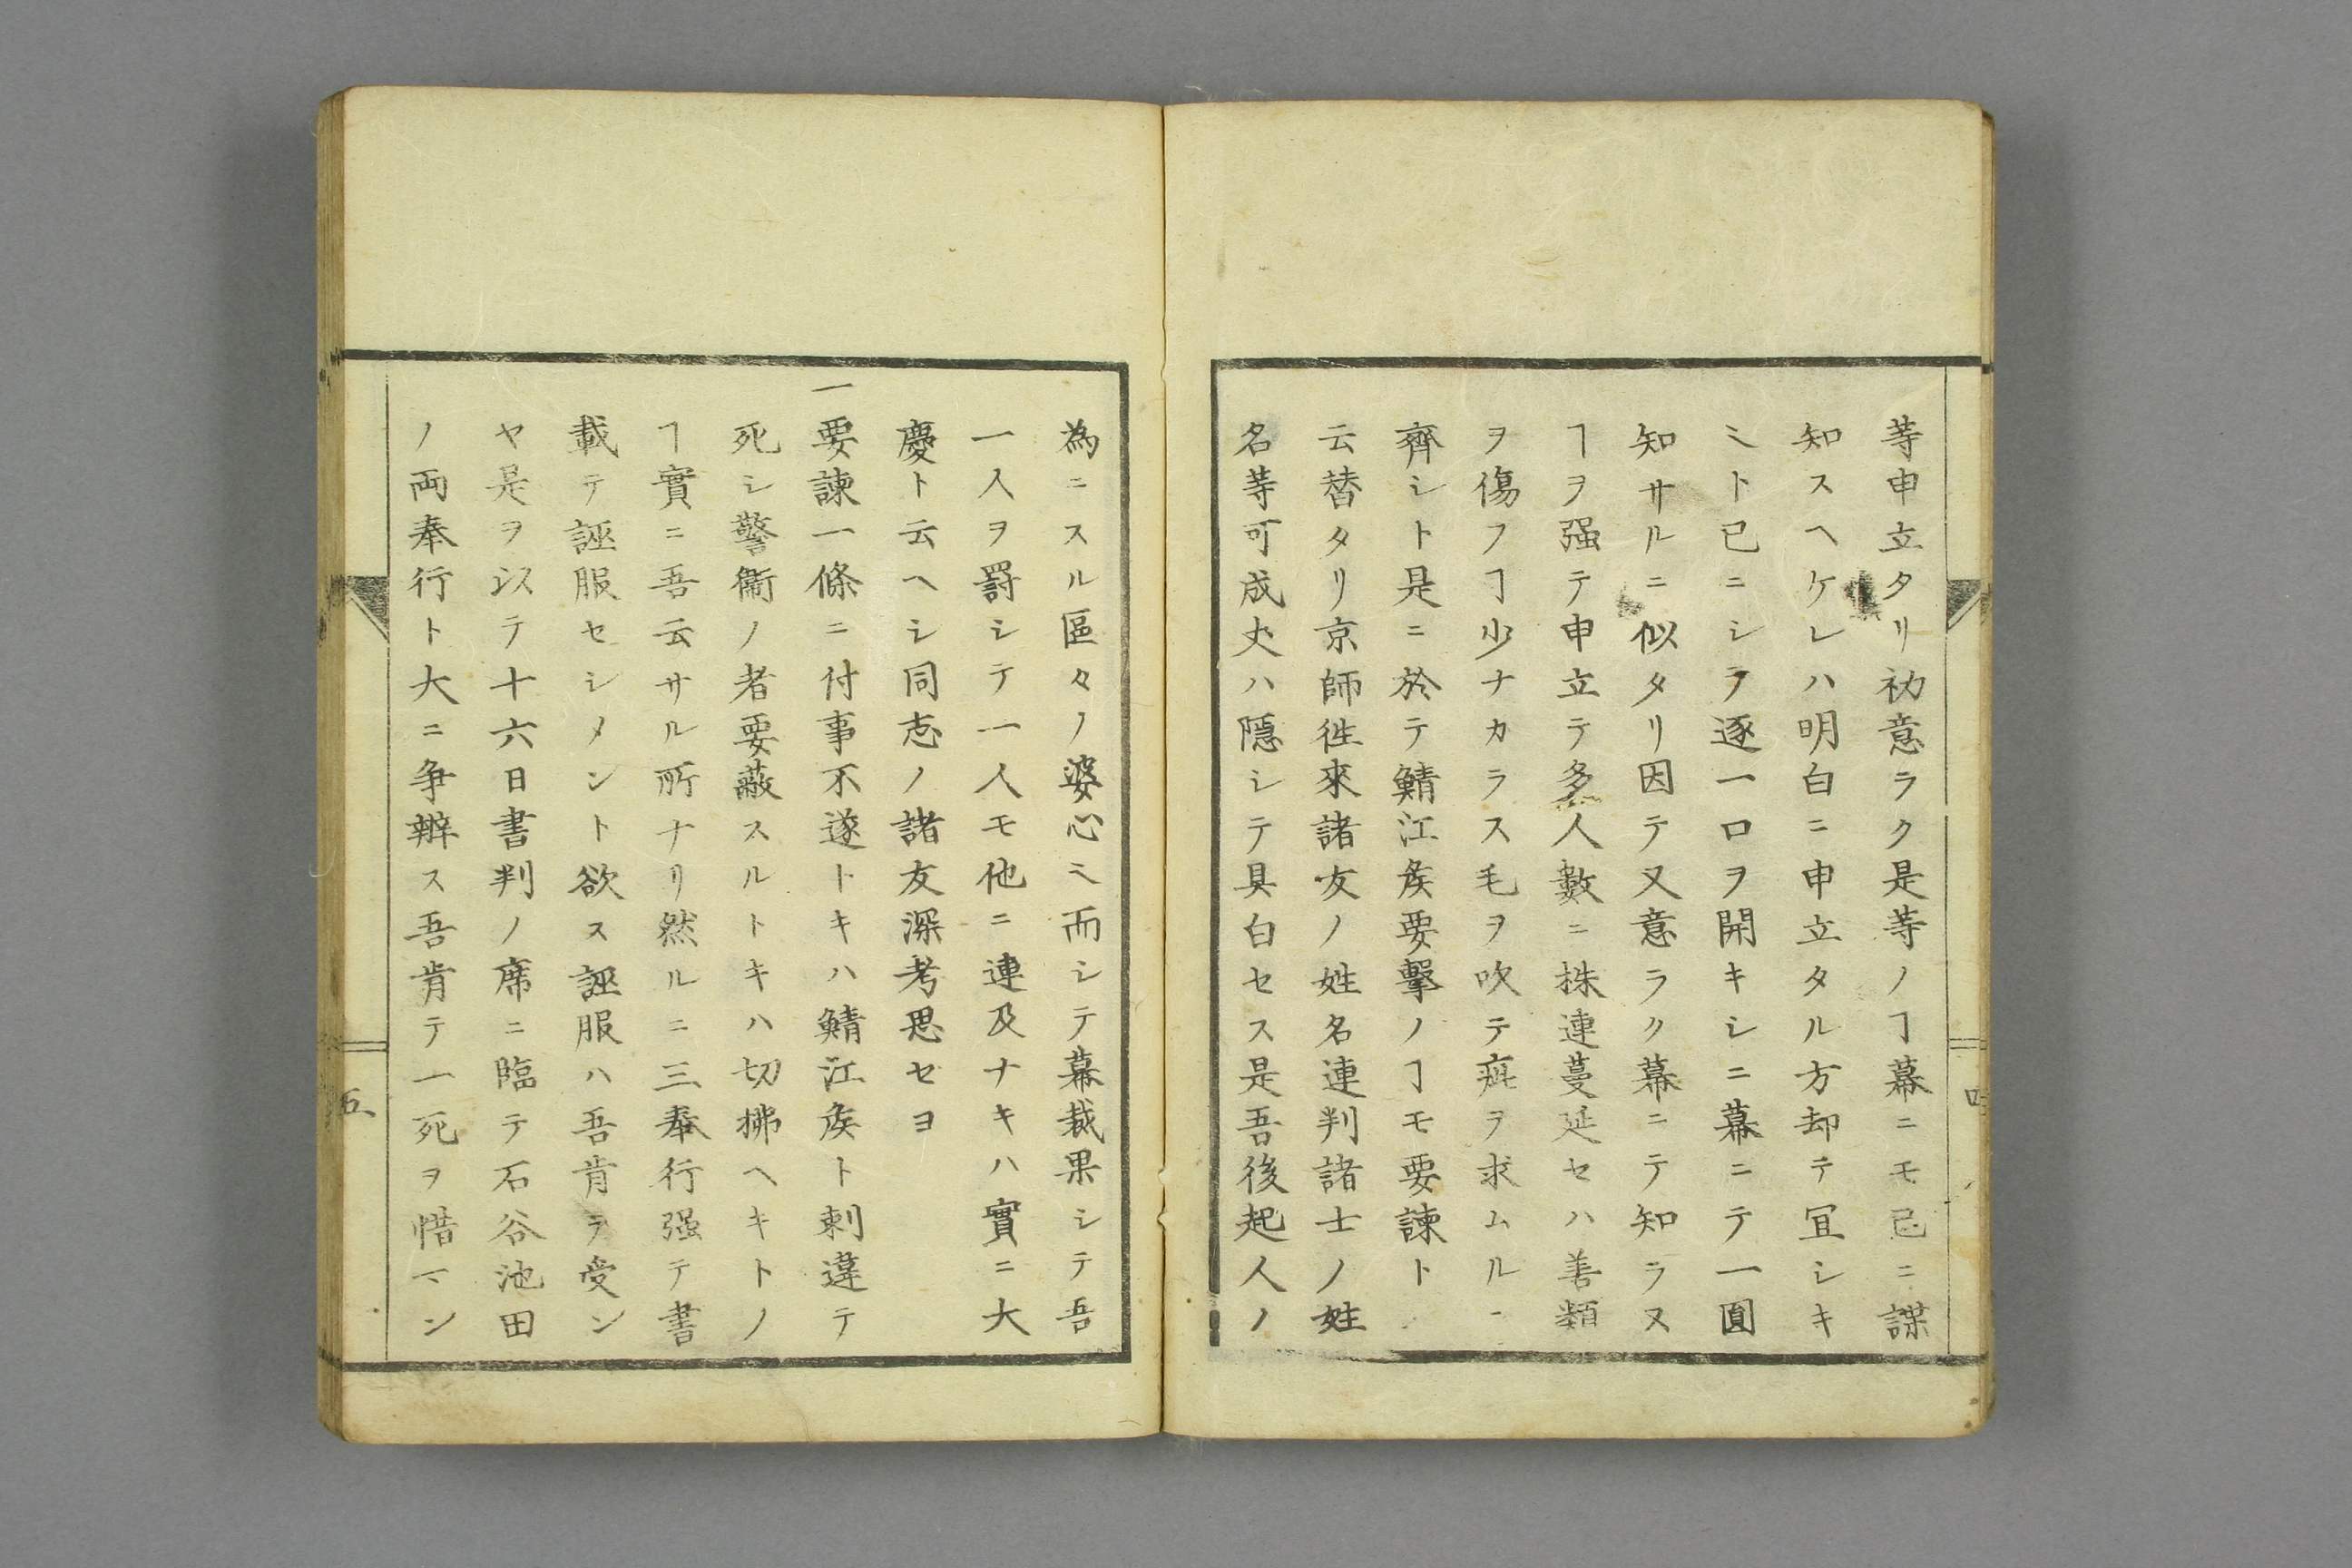 等申立タリ初意ラク是等ノヿ幕ニモ已ニ諜
知スヘケレハ明白ニ申立タル方却テ冝シキ
ミト已ニシテ逐一口ヲ開キシニ幕ニテ一圓
知サルニ似タリ因テ又意ラク幕ニテ知ラヌ
ヿヲ强テ申立テ多人數ニ株連蔓延セハ善類
ヲ傷フヿ少ナカラス毛ヲ吹テ疵ヲ求ムルニ
齊シト是ニ於テ鯖江矦要擊ノヿモ要諫ト
云替タリ京師徃來諸友ノ姓名連判諸士ノ姓
名等可成丈ハ隱シテ具白セス是吾後起人ノ
四
為ニスル區々ノ婆心ミ而シテ幕裁果シテ吾
一人ヲ罸シテ一人モ他ニ連及ナキハ實ニ大
慶ト云ヘシ同志ノ諸友深考思セヨ
一要諫一條ニ付事不遂トキハ鯖江矦ト刺違テ
死シ警衞ノ者要蔽スルトキハ切拂ヘキトノ
ヿ實ニ吾云サル所ナリ然ルニ三奉行强テ書
載テ誣服セシメント欲ス誣服ハ吾肯テ受ン
ヤ是ヲ以テ十六日書判ノ席ニ臨テ石谷池田
ノ両奉行ト大ニ争辨ス吾肯テ一死ヲ惜マン
五